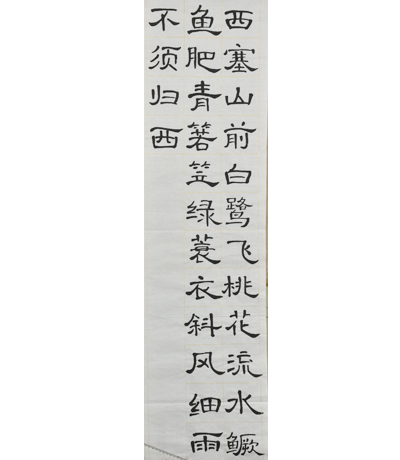 西塞山前白鹭飞桃花流水鳜
鱼肥青箬笠绿蓑衣斜风细雨
不须归西